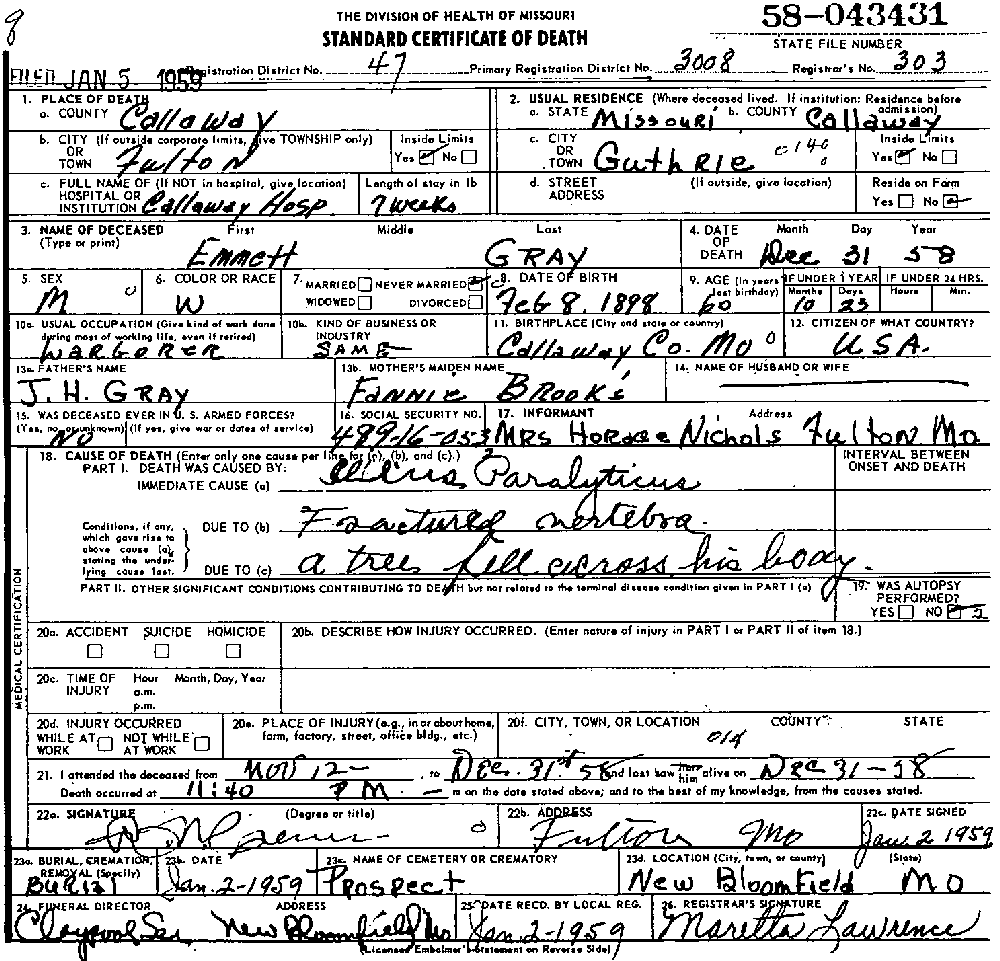 8
THE DIVISION OF HEALTH OF MISSOURI
58-043431
STANDARD CERTIFICATE OF DEATH
STATE FILE NUMBER
FILED JAN 5 1959 Registration District No. 47 Primary Registration District No. 3008 Registrar's No. 303
1. PLACE OF DEATH
a. COUNTY Callaway
2. USUAL RESIDENCE (Where deceased lived. If institution: Residence before admission)
a. STATE Missouri b. COUNTY Callaway
b. CITY (If outside corporate limits, give TOWNSHIP only) OR TOWN Fulton
Inside Limits Yes No
c. CITY OR TOWN Guthrie 0140 0
Inside Limits Yes No
c. FULL NAME OF (If NOT in hospital, give location) HOSPITAL OR INSTITUTION Callaway Hosp.
Length of stay in 1b 7 weeks
d. STREET ADDRESS (If outside, give location)
Reside on Farm Yes No
3. NAME OF DECEASED (Type or print) First Middle Last
Emmett GRAY
4. DATE OF DEATH Month Day Year
Dec 31 58
5. SEX M 0
6. COLOR OR RACE W
7. MARRIED NEVER MARRIED WIDOWED DIVORCED
8. DATE OF BIRTH Feb 8. 1898
9. AGE (In years last birthday) 60
IF UNDER 1 YEAR Months 10 Days 23
IF UNDER 24 HRS. Hours Min.
10a. USUAL OCCUPATION (Give kind of work done during most of working life, even if retired)
10b. KIND OF BUSINESS OR INDUSTRY SAME
11. BIRTHPLACE (City and state or country) Callaway Co. Mo 0
12. CITIZEN OF WHAT COUNTRY? USA.
13a. FATHER'S NAME J. H. GRAY
13b. MOTHER'S MAIDEN NAME Fannie Brooks
14. NAME OF HUSBAND OR WIFE
15. WAS DECEASED EVER IN U. S. ARMED FORCES? (Yes, no, or unknown) (If yes, give war or dates of service) NO
16. SOCIAL SECURITY NO. 489-16-053
17. INFORMANT Address
MRS Horace Nichols Fulton Mo
18. CAUSE OF DEATH (Enter only one cause per line for (a), (b), and (c).)
INTERVAL BETWEEN ONSET AND DEATH
PART I. DEATH WAS CAUSED BY:
IMMEDIATE CAUSE (a) Illius Paralyticus
Conditions, if any, which gave rise to above cause (a), stating the underlying cause last.
DUE TO (b) Fractured vertebra.
DUE TO (c) a tree fell across his body.
PART II. OTHER SIGNIFICANT CONDITIONS CONTRIBUTING TO DEATH but not related to the terminal disease condition given in PART I (a)
19. WAS AUTOPSY PERFORMED? YES NO 2
MEDICAL CERTIFICATION
20a. ACCIDENT SUICIDE HOMICIDE
20b. DESCRIBE HOW INJURY OCCURRED. (Enter nature of injury in PART I or PART II of item 18.)
20c. TIME OF INJURY Hour Month, Day, Year
a.m.
p.m.
20d. INJURY OCCURRED WHILE AT WORK NOT WHILE AT WORK
20e. PLACE OF INJURY (e.g., in or about home, farm, factory, street, office bldg., etc.)
20f. CITY, TOWN, OR LOCATION COUNTY STATE
014
21. I attended the deceased from Nov 12- , to Dec. 31st 58 and last saw her him alive on Dec 31-58
Death occurred at 11:40 P M. m on the date stated above; and to the best of my knowledge, from the causes stated.
22a. SIGNATURE (Degree or title) 0
22b. ADDRESS Fulton Mo
22c. DATE SIGNED Jan. 2 1959
23a. BURIAL, CREMATION, REMOVAL (Specify) Burial
23b. DATE Jan. 2-1959
23c. NAME OF CEMETERY OR CREMATORY Prospect
23d. LOCATION (City, town, or county) (State)
New Bloomfield Mo
24. FUNERAL DIRECTOR ADDRESS
New Bloomfield Mo
25. DATE RECD. BY LOCAL REG. Jan 2-1959
26. REGISTRAR'S SIGNATURE Maretta Lawrence
(Licensed Embalmer's Statement on Reverse Side)